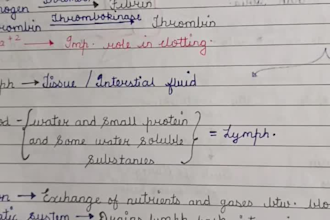 ogen ⟶ Fibrin
ombin Thrombokinase⟶ Thrombin
a⁺² ⟶ Imp. role in clotting.
ph → Tissue / Interstial fluid
od - { water and small protein
and some water soluble
substances } = Lymph.
n → Exchange of nutrients and gases btw.
system →